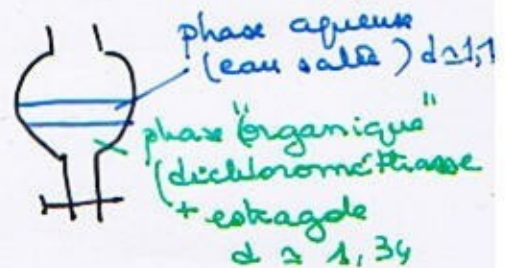 phase aqueuse
(eau salée) d ≃ 1,1
phase "organique"
(dichlorométhane
+ estragole
d ≃ 1,34